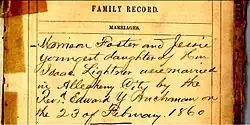 FAMILY RECORD.
MARRIAGES.
Morrison Foster and Jessie
youngest daughter of
Isaac Lightner were married
in Allegheny City by the
Revd. Edward Y Buchanan on
the 23 of February. 1860